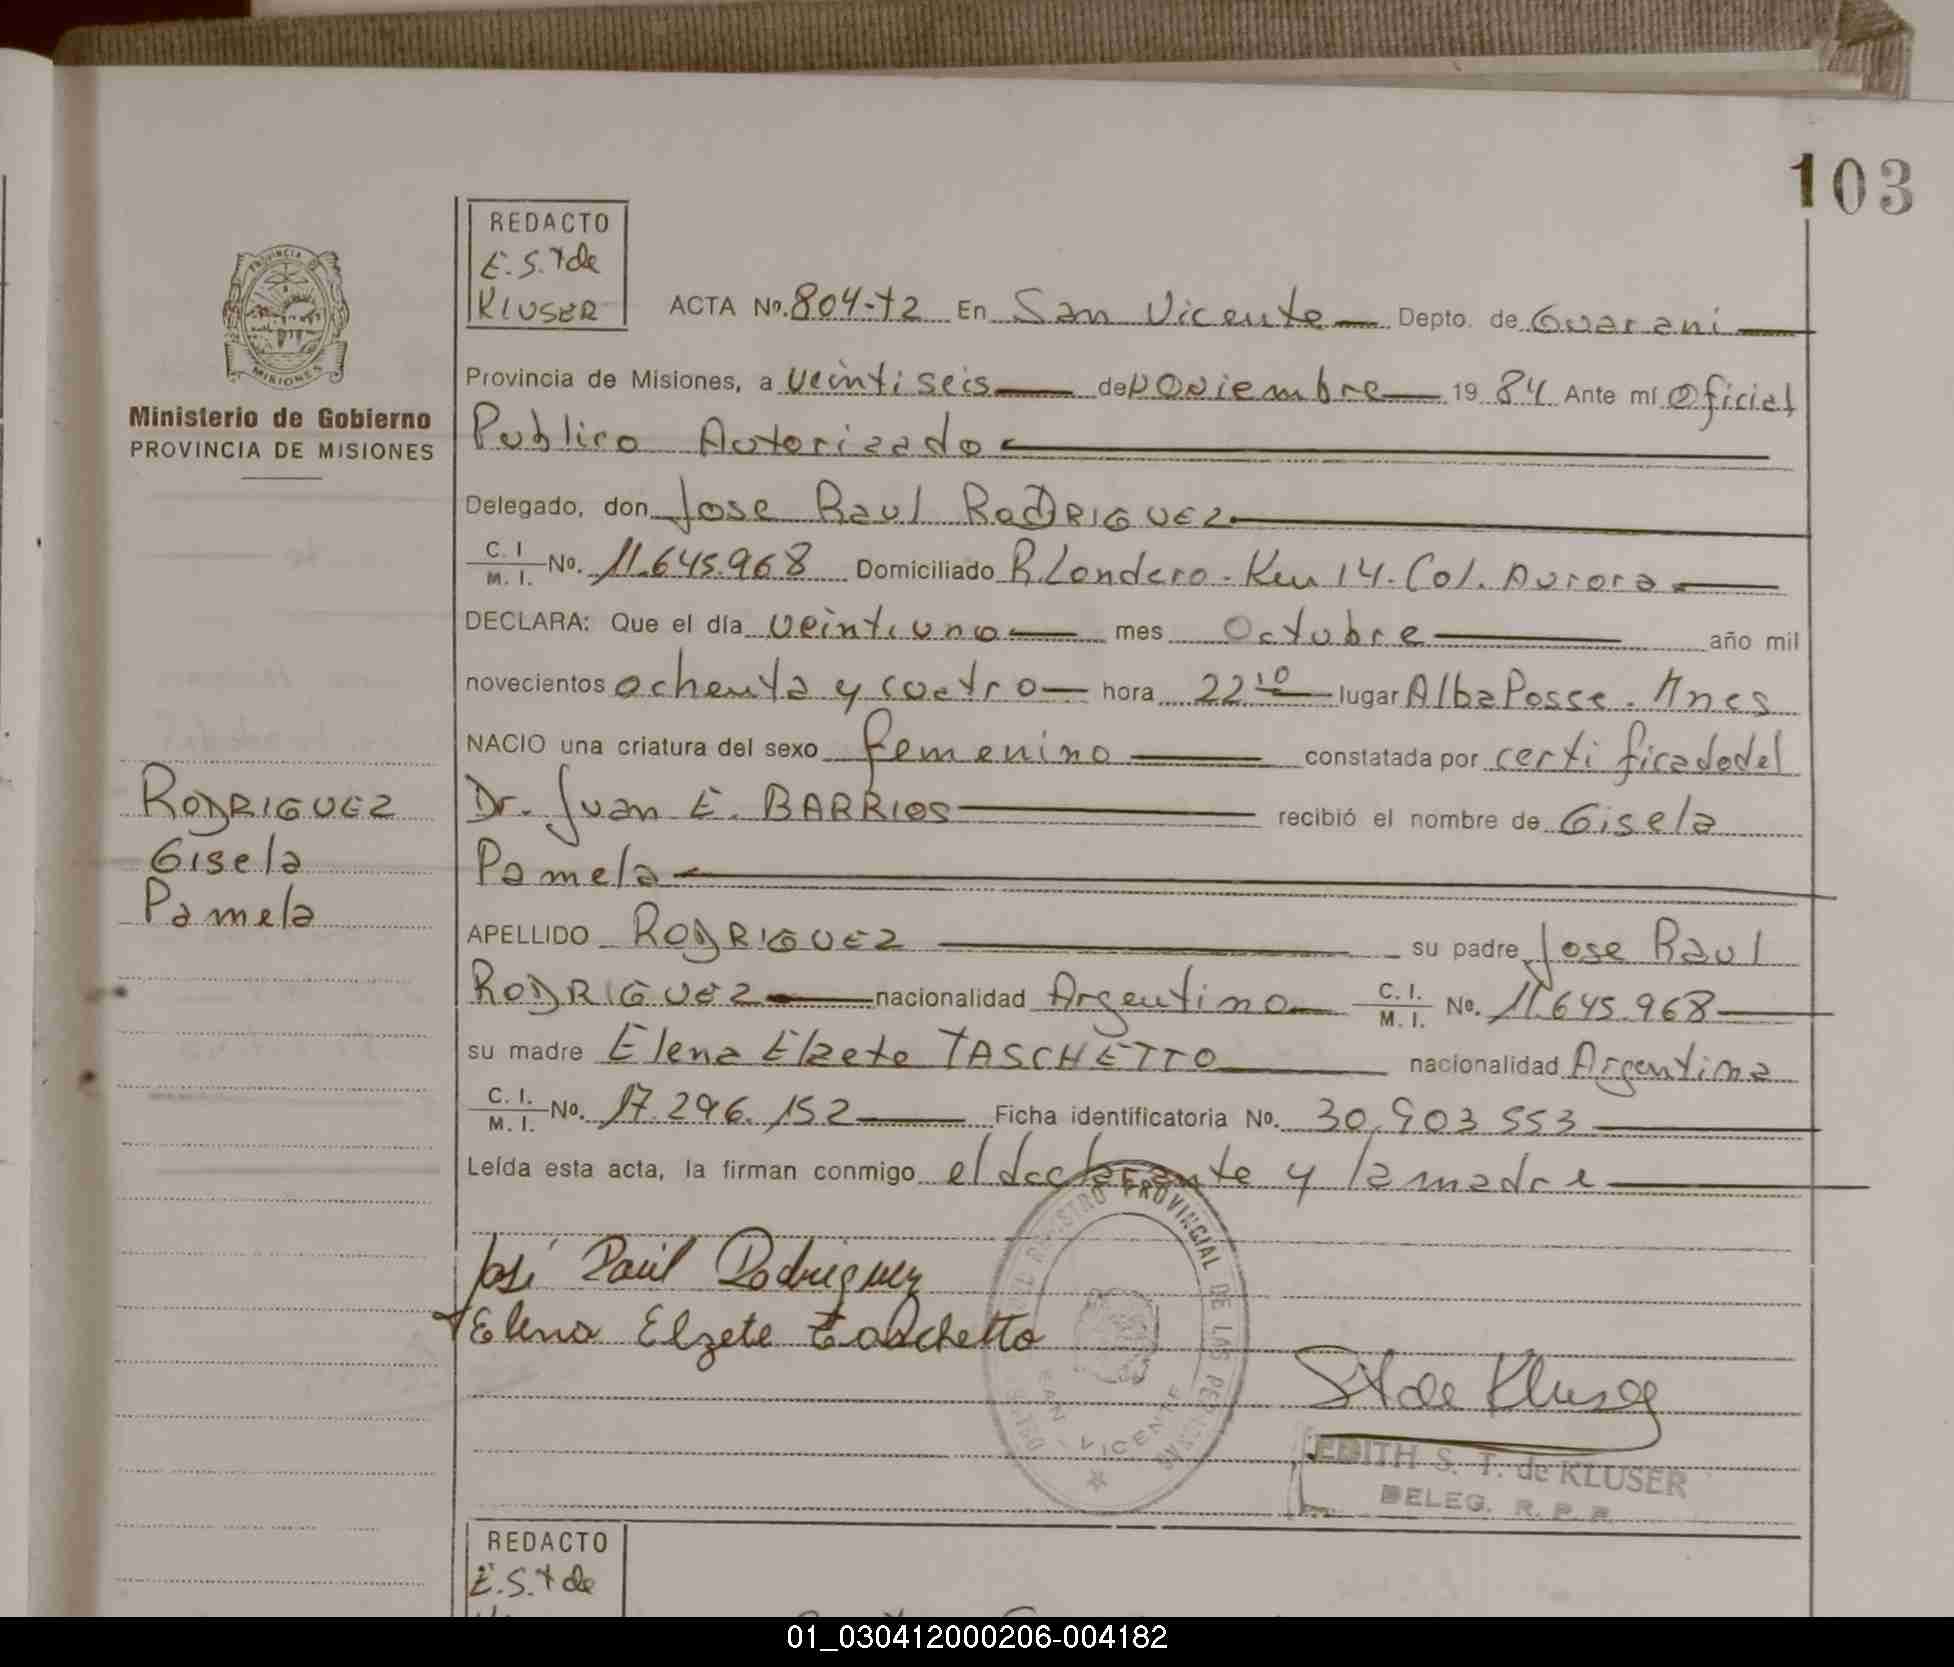 103
REDACTO
E.S.T de
KLUSER
ACTA No. 804-T2 En San Vicente Depto. de Guarani
Provincia de Misiones, a veintiseis de noviembre 19 84 Ante mí Oficial
Publico Autorizado
Delegado, don Jose Raul RODRIGUEZ
C. I. M. I. No. 11.645.968 Domiciliado R. Londero - Km 14. Col. Aurora
DECLARA: Que el día veintiuno mes Octubre año mil
novecientos ochenta y cuatro hora 22 10 lugar Alba Posse. Mnes
NACIO una criatura del sexo femenino constatada por certificado del
Dr. Juan E. BARRIOS recibió el nombre de Gisela
Pamela
APELLIDO RODRIGUEZ su padre Jose Raul
RODRIGUEZ nacionalidad Argentino C. I. M. I. No. 11.645.968
su madre Elena Elzete TASCHETTO nacionalidad Argentina
C. I. M. I. No. 17.296.152 Ficha identificatoria No. 30.903 553
Leída esta acta, la firman conmigo el declarante y la madre
José Raúl Rodriguez
Elena Elzete Taschetto
ST de Kluser
REGISTRO PROVINCIAL DE LAS PERSONAS
SAN VICENTE
EDITH S. T. de KLUSER
DELEG. R. P. P.
PROVINCIA DE
MISIONES
Ministerio de Gobierno
PROVINCIA DE MISIONES
RODRIGUEZ
Gisela
Pamela
REDACTO
E.S.T de
01_030412000206-004182